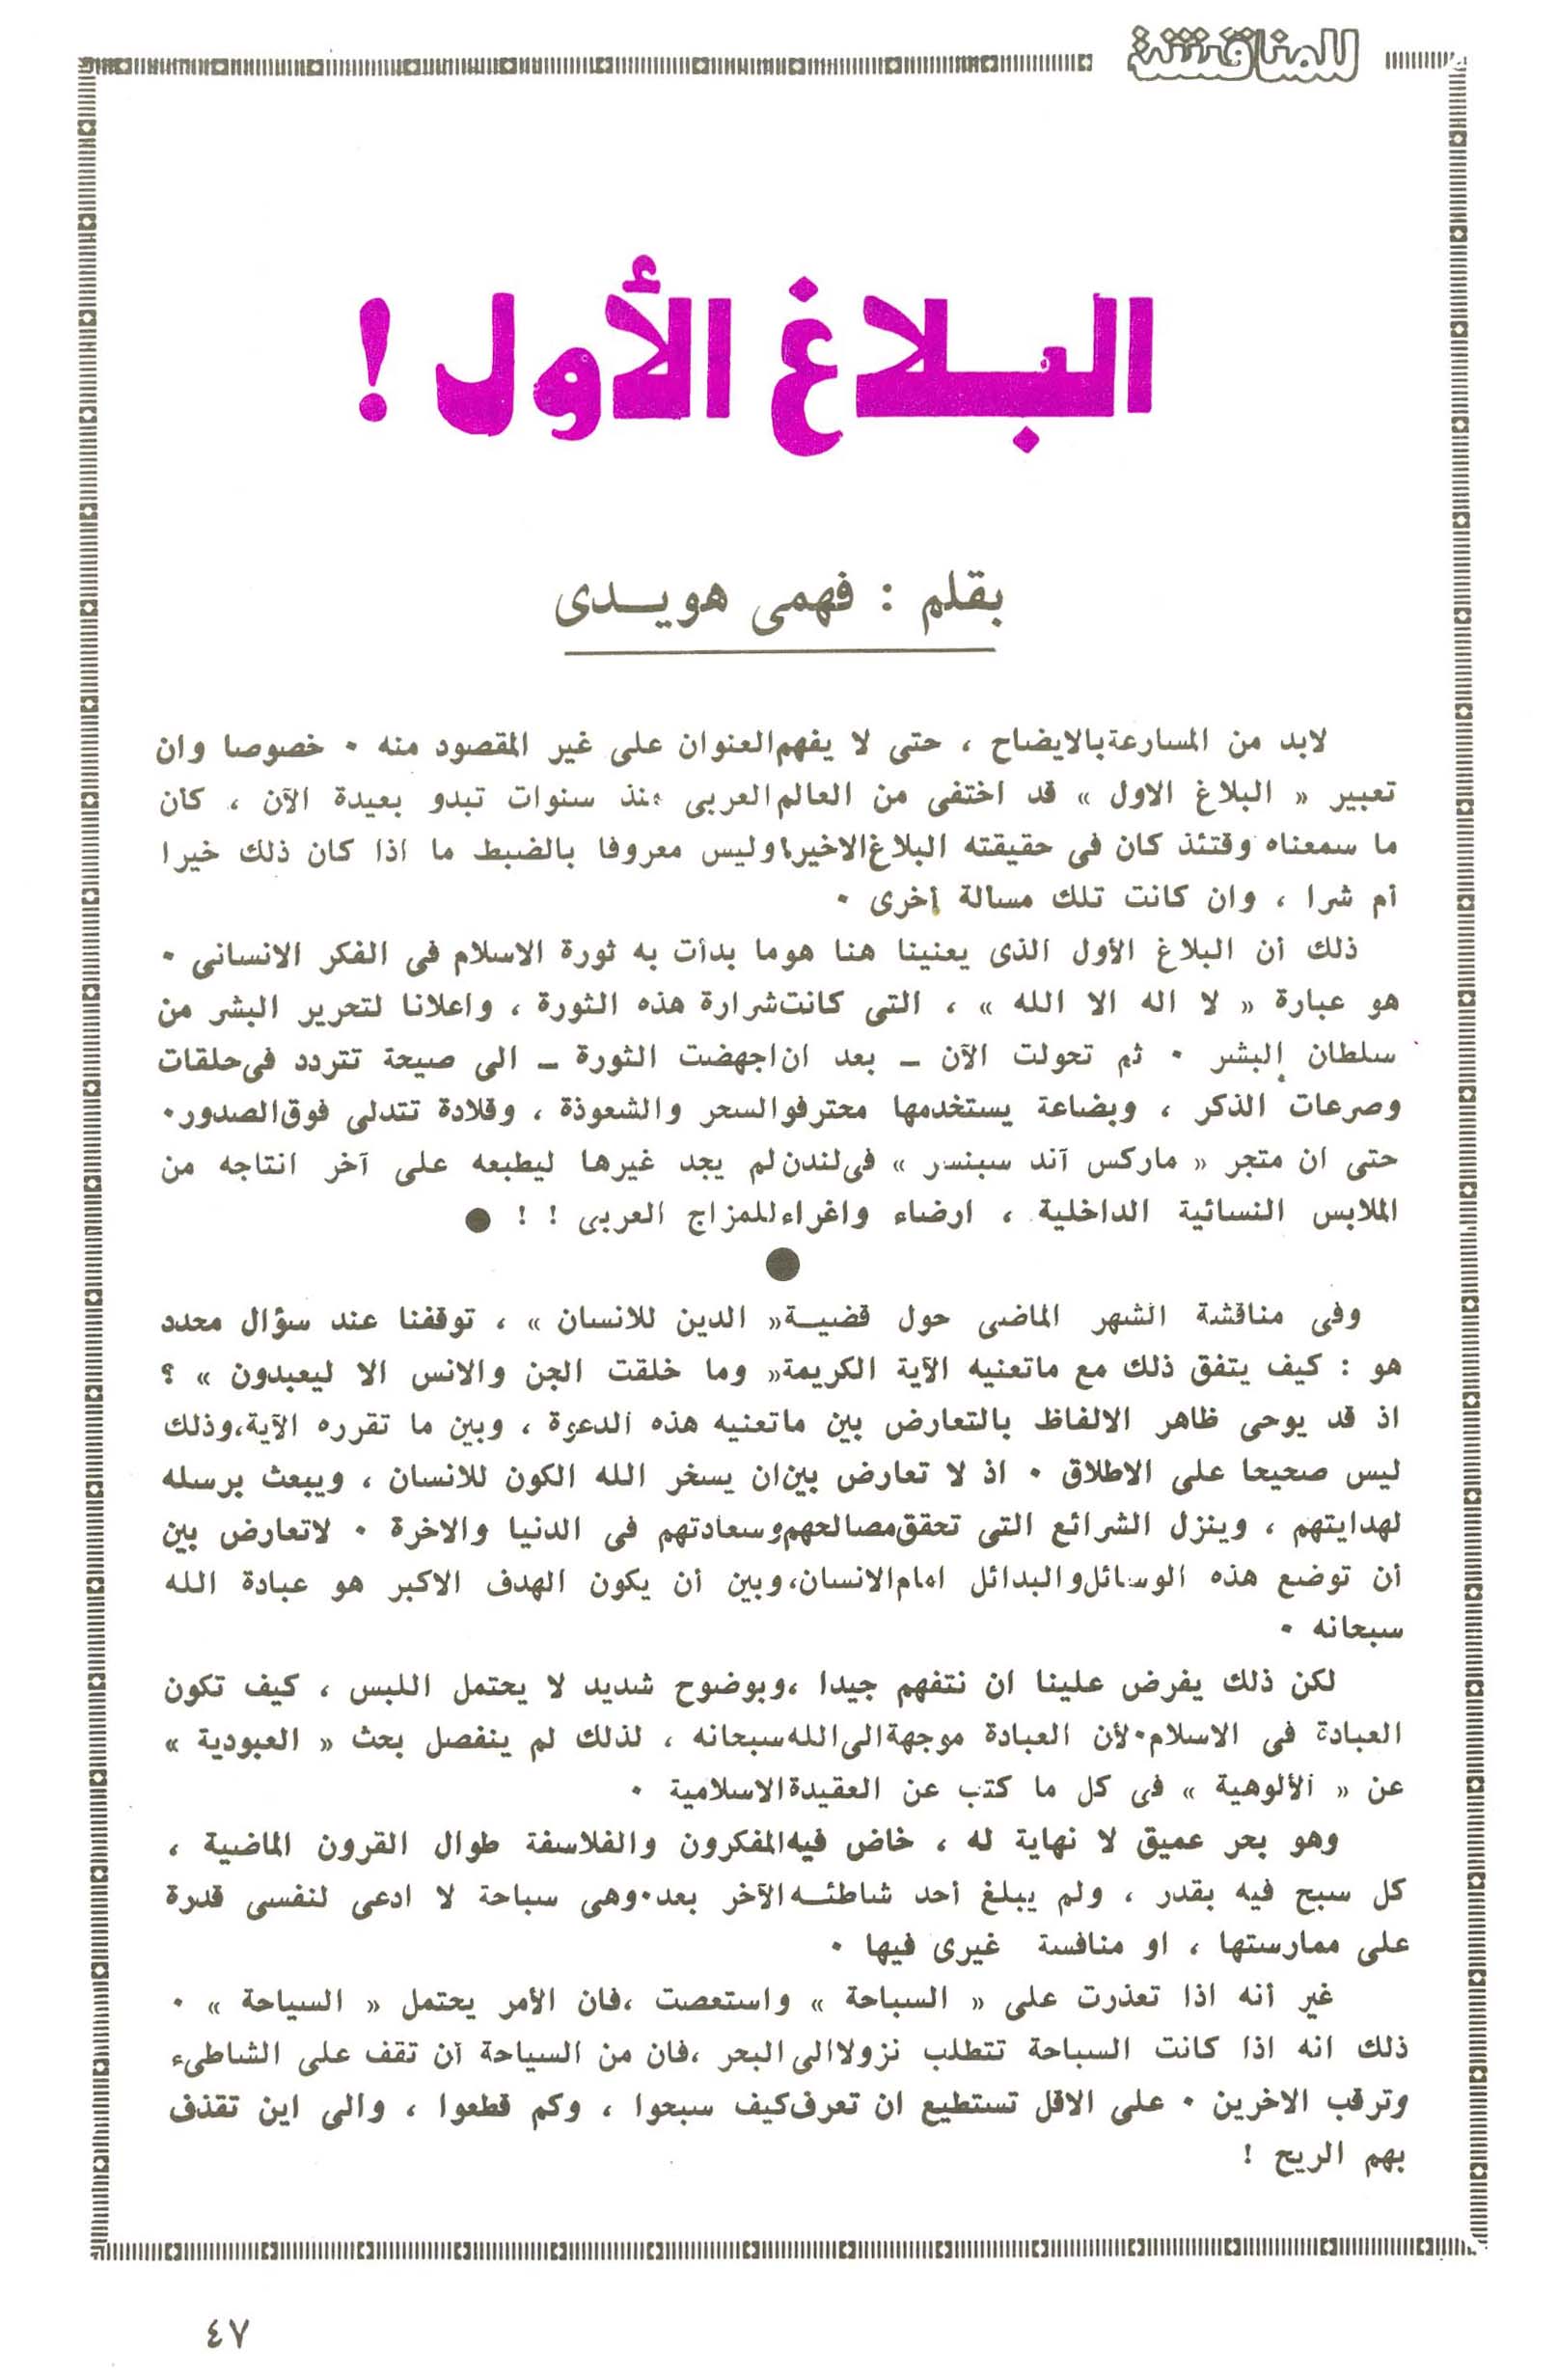 للمناقشة
البلاغ الأول !
بقلم : فهمى هويدى
لابد من المسارعة بالايضاح ، حتى لا يفهم العنوان على غير المقصود منه ٠ خصوصا وان
تعبير « البلاغ الاول » قد اختفى من العالم العربى منذ سنوات تبدو بعيدة الآن ، كان
ما سمعناه وقتئذ كان فى حقيقته البلاغ الاخير! وليس معروفا بالضبط ما اذا كان ذلك خيرا
أم شرا ، وان كانت تلك مسالة أخرى ٠
ذلك أن البلاغ الأول الذى يعنينا هنا هوما بدأت به ثورة الاسلام فى الفكر الانسانى ٠
هو عبارة « لا اله الا الله » ، التى كانت شرارة هذه الثورة ، واعلانا لتحرير البشر من
سلطان البشر ٠ ثم تحولت الآن ـ بعد ان اجهضت الثورة ـ الى صيحة تتردد فى حلقات
وصرعات الذكر ، وبضاعة يستخدمها محترفو السحر والشعوذة ، وقلادة تتدلى فوق الصدور٠
حتى ان متجر « ماركس آند سبنسر » فى لندن لم يجد غيرها ليطبعه على آخر انتاجه من
الملابس النسائية الداخلية ، ارضاء واغراء للمزاج العربى ! ! ●
●
وفى مناقشة الشهر الماضى حول قضية « الدين للانسان » ، توقفنا عند سؤال محدد
هو : كيف يتفق ذلك مع ماتعنيه الآية الكريمة « وما خلقت الجن والانس الا ليعبدون » ؟
اذ قد يوحى ظاهر الالفاظ بالتعارض بين ماتعنيه هذه الدعوة ، وبين ما تقرره الآية، وذلك
ليس صحيحا على الاطلاق ٠ اذ لا تعارض بين ان يسخر الله الكون للانسان ، ويبعث برسله
لهدايتهم ، وينزل الشرائع التى تحقق مصالحهم وسعادتهم فى الدنيا والاخرة ٠ لاتعارض بين
أن توضع هذه الوسائل والبدائل امام الانسان، وبين أن يكون الهدف الاكبر هو عبادة الله
سبحانه ٠
لكن ذلك يفرض علينا ان نتفهم جيدا ، وبوضوح شديد لا يحتمل اللبس ، كيف تكون
العبادة فى الاسلام٠ لأن العبادة موجهة الى الله سبحانه ، لذلك لم ينفصل بحث « العبودية »
عن « الألوهية » فى كل ما كتب عن العقيدة الاسلامية ٠
وهو بحر عميق لا نهاية له ، خاض فيه المفكرون والفلاسفة طوال القرون الماضية ،
كل سبح فيه بقدر ، ولم يبلغ أحد شاطئه الآخر بعد٠ وهى سباحة لا ادعى لنفسى قدرة
على ممارستها ، او منافسة غيرى فيها ٠
غير أنه اذا تعذرت على « السباحة » واستعصت ، فان الأمر يحتمل « السياحة » ٠
ذلك انه اذا كانت السباحة تتطلب نزولا الى البحر ، فان من السياحة أن تقف على الشاطىء
وترقب الاخرين ٠ على الاقل تستطيع ان تعرف كيف سبحوا ، وكم قطعوا ، والى اين تقذف
بهم الريح !
٤٧